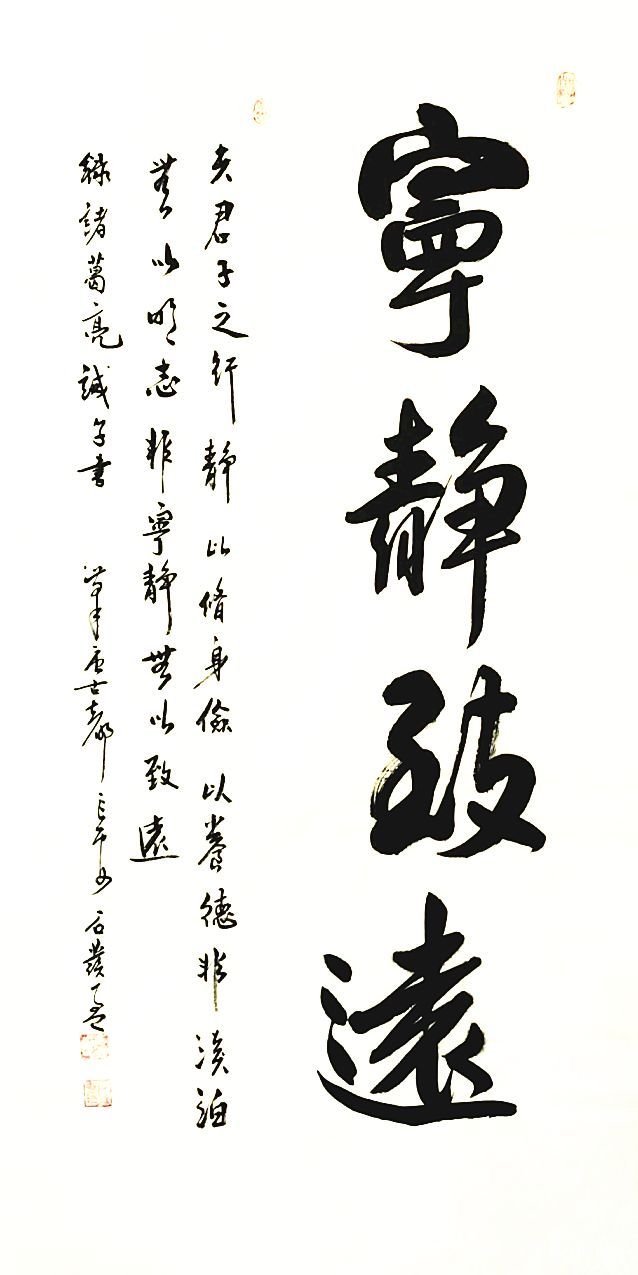 寧靜致遠
夫君子之行靜以脩身儉以養德非淡泊
無以明志非寧靜無以致遠
錄諸葛亮誡子書